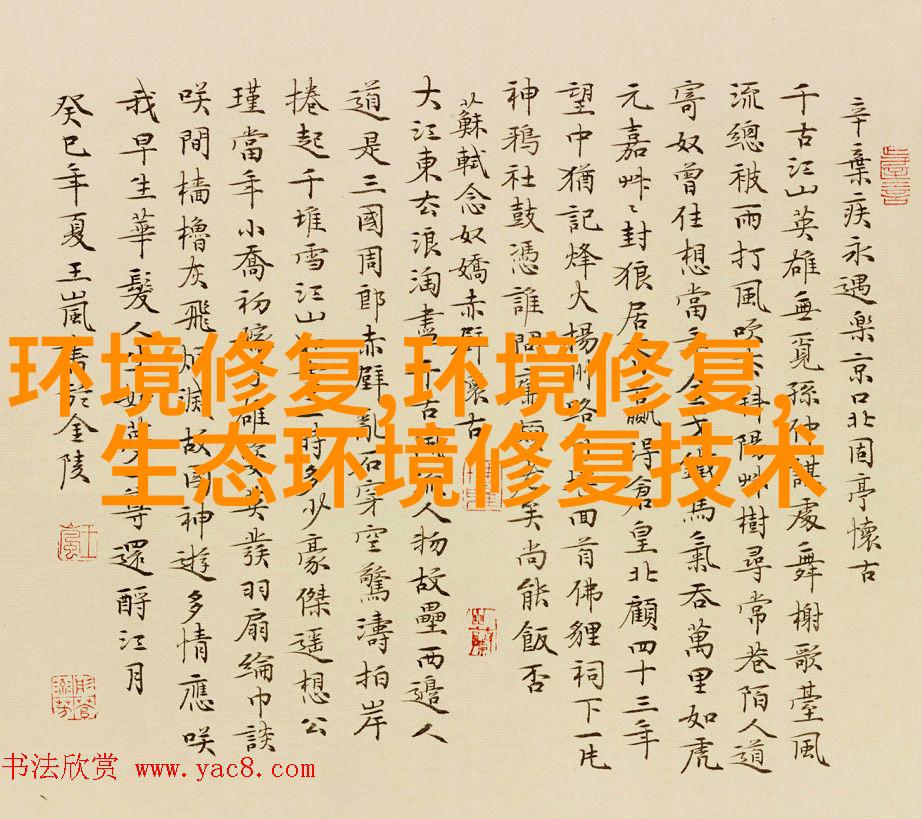 辛棄疾永遇樂京口北固亭懷古
千古江山英雄無覓孫仲謀處舞榭歌臺風
流總被雨打風吹去斜陽艸樹尋常巷陌人道
寄奴曾住想當年金戈鐵馬氣吞萬里如虎
元嘉艸〻封狼居胥贏得倉皇北顧四十三年
望中猶記烽火揚州路堪回首佛貍祠下一片
神鴉社鼓憑誰問廉頗老矣尚能飯否
蘇軾念奴嬌赤壁懷古
大江東去浪淘盡千古風流人物故壘西邊人
道是三國周郎赤壁亂石穿空驚濤拍岸
捲起千堆雪江山一時多少豪傑遙想公
瑾當年小喬初嫁了雄姿英發羽扇綸巾談
咲間檣櫓灰飛煙滅故國神遊多情應咲
我早生華髮人生如夢一尊還酹江月
癸巳年夏王嵐書於金陵
环境修复,环境修复,
生态环境修复技术
书法欣赏 www.yac8.com